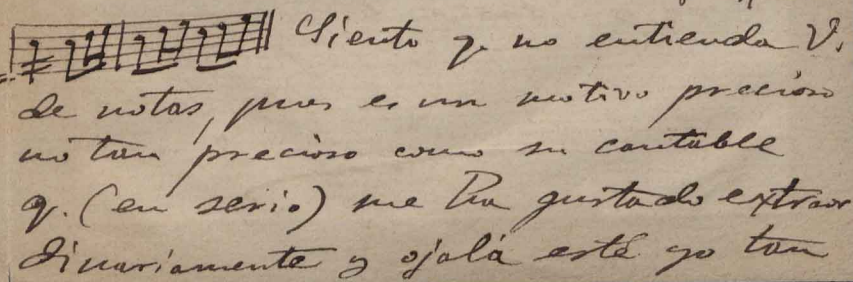 Siento q. no entienda V.
de notas, pues es un motivo precioso
no tan precioso como su cantable
q. (en serio) me ha gustado extraor
dinariamente y ojalá esté yo tan